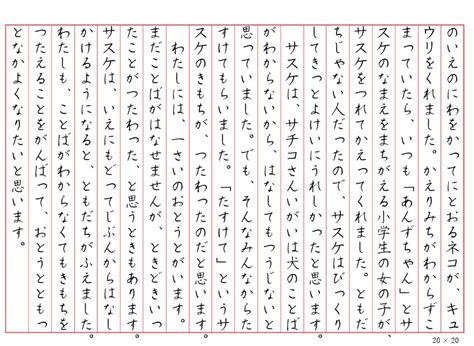 のいえのにわをかってにとおるネコが、キュ
ウリをくれました。かえりみちがわからずこ
まっていたら、いつも「あんずちゃん」とサ
スケのなまえをまちがえる小学生の女の子が、
サスケをつれてかえってくれました。ともだ
ちじゃない人だったので、サスケはびっくり
してきっとよけいにうれしかったと思います。
サスケは、サチコさんいがいは犬のことば
がわからないから、はなしてもつうじないと
思っていました。でも、そんなみんなからた
すけてもらいました。「たすけて」というサ
スケのきもちが、つたわったのだと思います。
わたしには、一さいのおとうとがいます。
まだことばがはなせませんが、ときどきいっ
たことがつたわった、と思うときもあります。
サスケは、いえにもどってじぶんからはなし
かけるようになると、ともだちがふえました。
わたしも、ことばがわからなくてもきもちを
つたえることをがんばって、おとうとともっ
となかよくなりたいと思います。
20×20